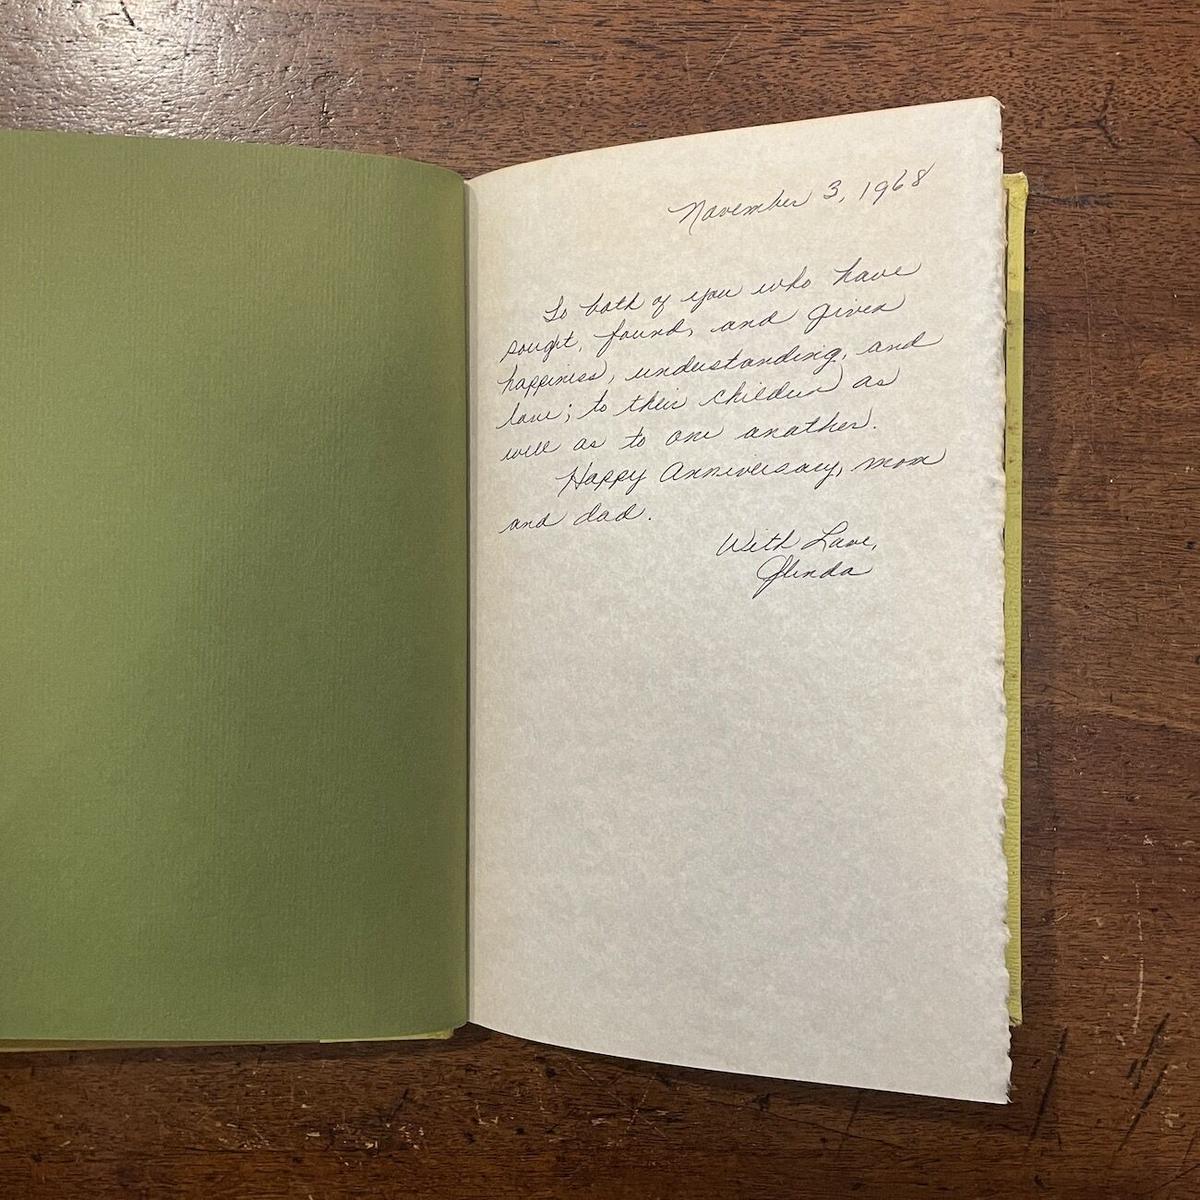 November 3, 1968
To both of you who have
sought, found, and given
happiness, understanding, and
love; to their children as
well as to one another.
Happy Anniversary, mom
and dad.
With Love,
Glenda